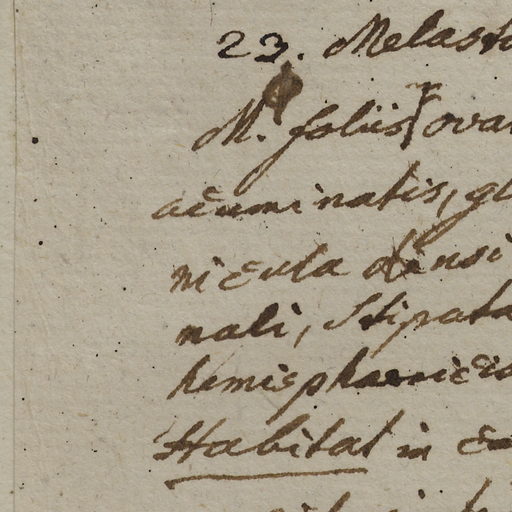 23. Melasto
M. foliis ova
acuminatis, gl
nicula densi
nali, stipata
hemisphaericis
Habitat in